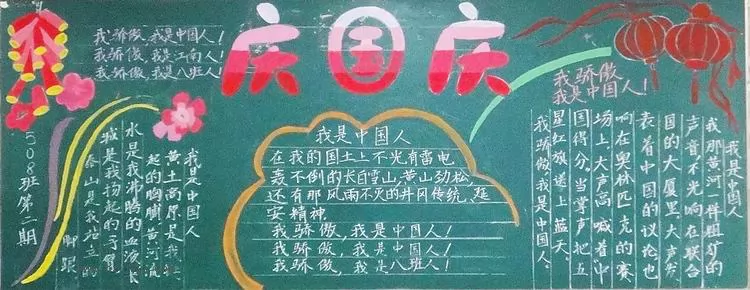 庆国庆
我骄傲,我是中国人!
我骄傲,我是江南人!
我骄傲,我是八班人!
508班第二期
我是中国人
黄土高原是我
起的胸脯黄河流
水是我沸腾的血液长
城是我扬起的手臂
泰山是我站立的
脚跟
我是中国人
在我的国土上不光有雷电
轰不倒的长白雪山,黄山劲松,
还有那风雨不灭的井冈传统,延
安精神
我骄傲,我是中国人!
我骄傲,我是中国人!
我骄傲,我是八班人!
我骄傲
我是中国人!
我是中国人
我那黄河一样粗犷的
声音,不光响在联合
国的大厦里,大声发
表着中国的议论也
响在奥林匹克的赛
场上,大声高喊着中
国得分。当掌声把五
星红旗送上蓝天。
我骄傲,我是中国人。